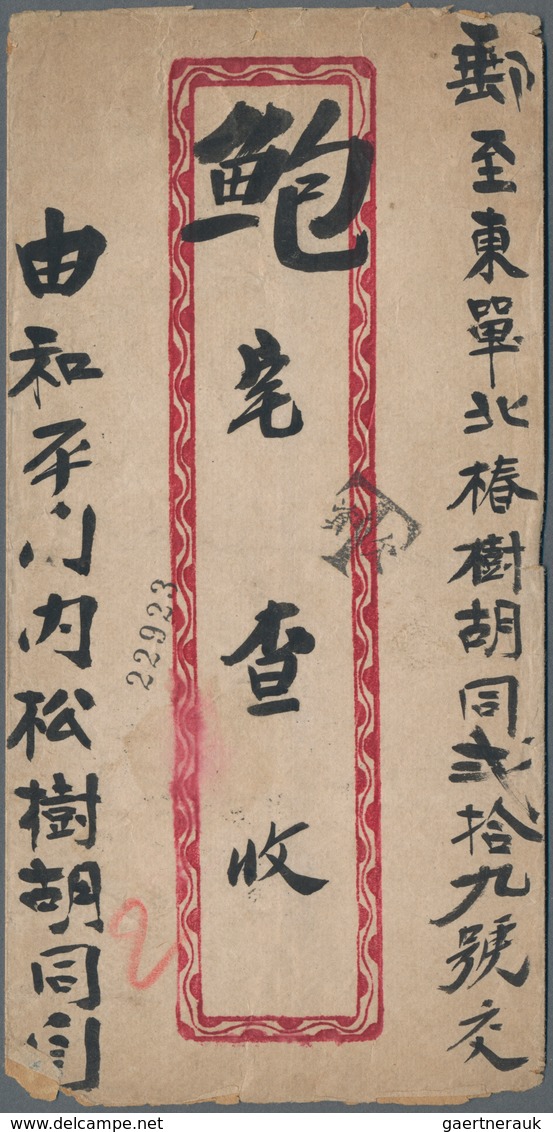 郵至東單北椿樹胡同弍拾九號交
鮑宅查收
由和平门内松樹胡同
22923
2
gaertnerauk